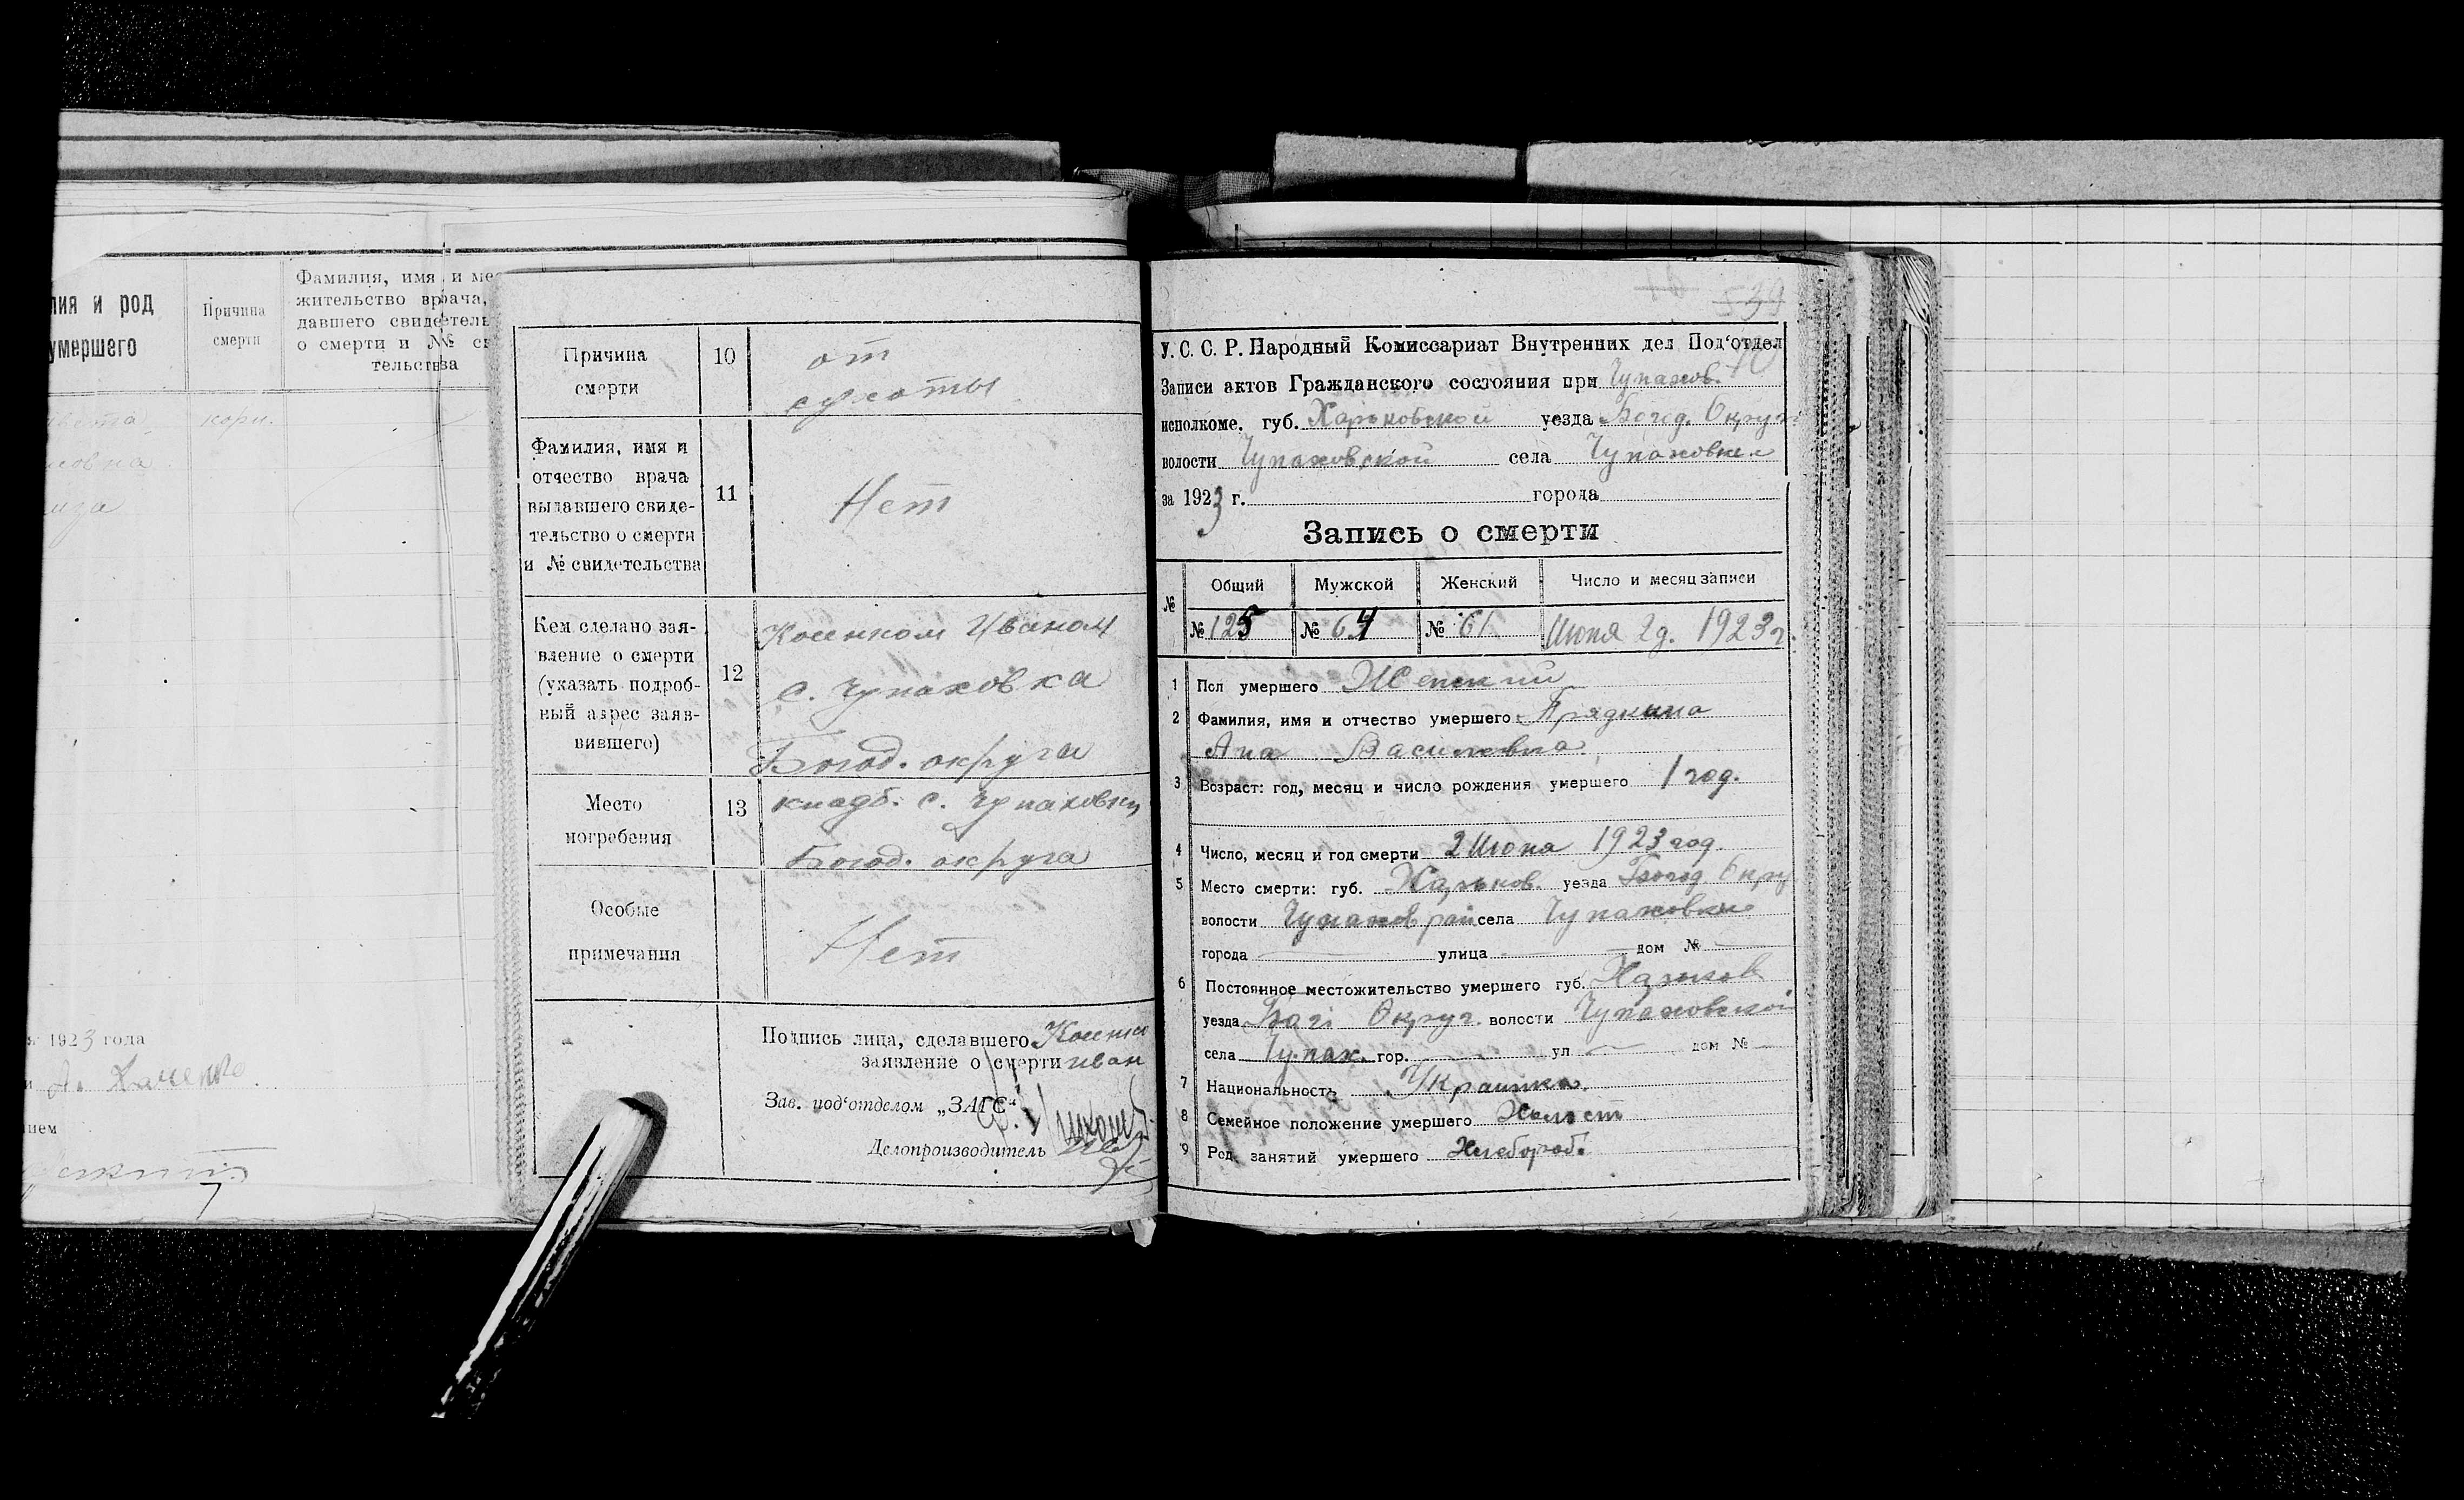 лия и род
умершего
Причина
смерти
Фамилия, имя и мес
жительство врача,
давшего свидетель
о смерти и № св
тельства
кори.
1923 года
Причина
смерти
10
от
сухоты
Фамилия, имя и
отчество врача
выдавшего свиде-
тельство о смерти
и № свидетельства
11
Нет
Кем сделано зая-
вление о смерти
(указать подроб-
ный адрес заяв-
вившего)
12
Иваном
с. Чупаховка
Богод. округа
Место
погребения
13
кладб. с. Чупаховки
Богод. округа
Особые
примечания
Нет
Подпись лица, сделавшего
заявление о смерти иван
Зав. под‘отделом „ЗАГС“
Делопроизводитель
539
У. С. С. Р. Народный Комиссариат Внутренних дел Под‘отдел
Записи актов Гражданского состояния при Чупахов.
исполкоме. губ. Харьковской уезда Богод. Округа
волости Чупаховской села Чупаховки
за 1923 г. города
Запись о смерти
№ Общий Мужской Женский Число и месяц записи
№ 125 № 64 № 61 Июня 2д. 1923г.
1 Пол умершего Женский
2 Фамилия, имя и отчество умершего: Прядкина
Ана Василевна
3 Возраст: год, месяц и число рождения умершего 1 год.
4 Число, месяц и год смерти 2 Июня 1923 год.
5 Место смерти: губ. Харьков. уезда Богод Окру
волости Чупахов рай села Чупаховки
города улица дом №
6 Постоянное местожительство умершего губ. Харьков
уезда Бог. Округ. волости Чупаховской
села Чупах. гор. ул дом №
7 Национальность Украинка.
8 Семейное положение умершего Холост
9 Род занятий умершего Хлебороб.